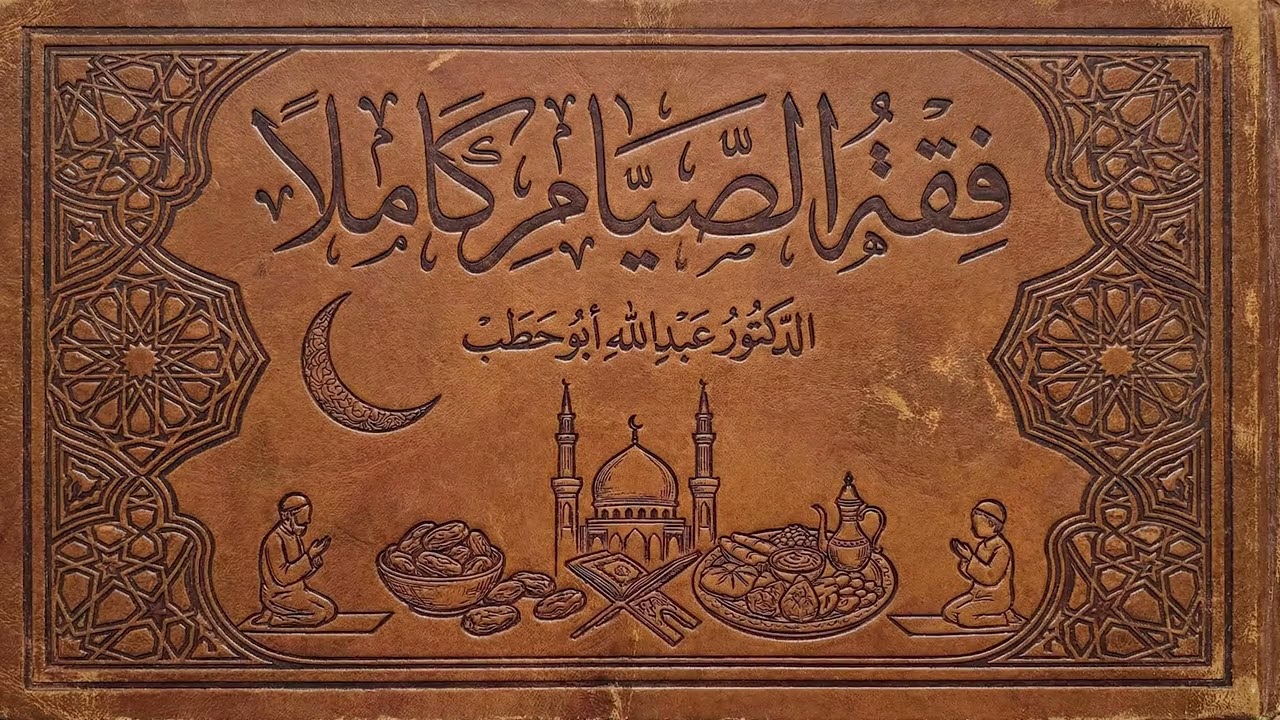 فِقْهُ الصِّيَامِ كَامِلًا
الدَّكْتُورُ عَبْدِاللهِ أَبُو حَطَبْ